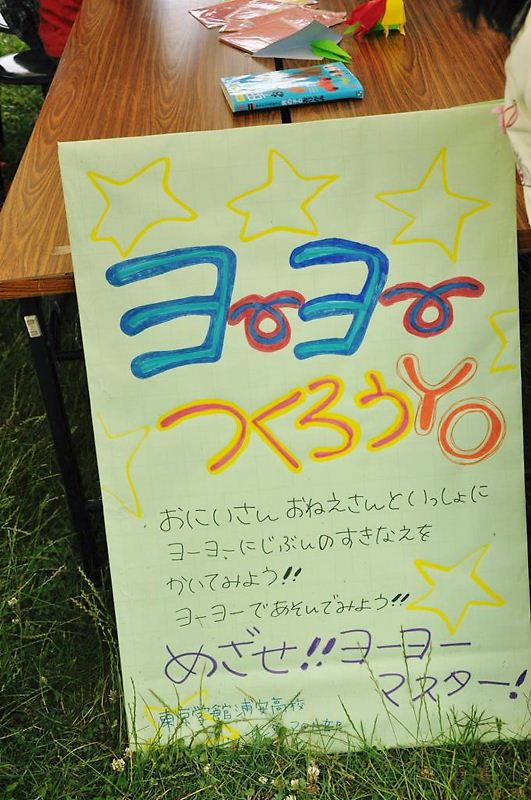 ヨーヨー
つくろうYO
おにいさん おねえさんといっしょに
ヨーヨーにじぶんのすきなえを
かいてみよう!!
ヨーヨーであそんでみよう!!
めざせ!!ヨーヨー
マスター!
東京学館浦安高校